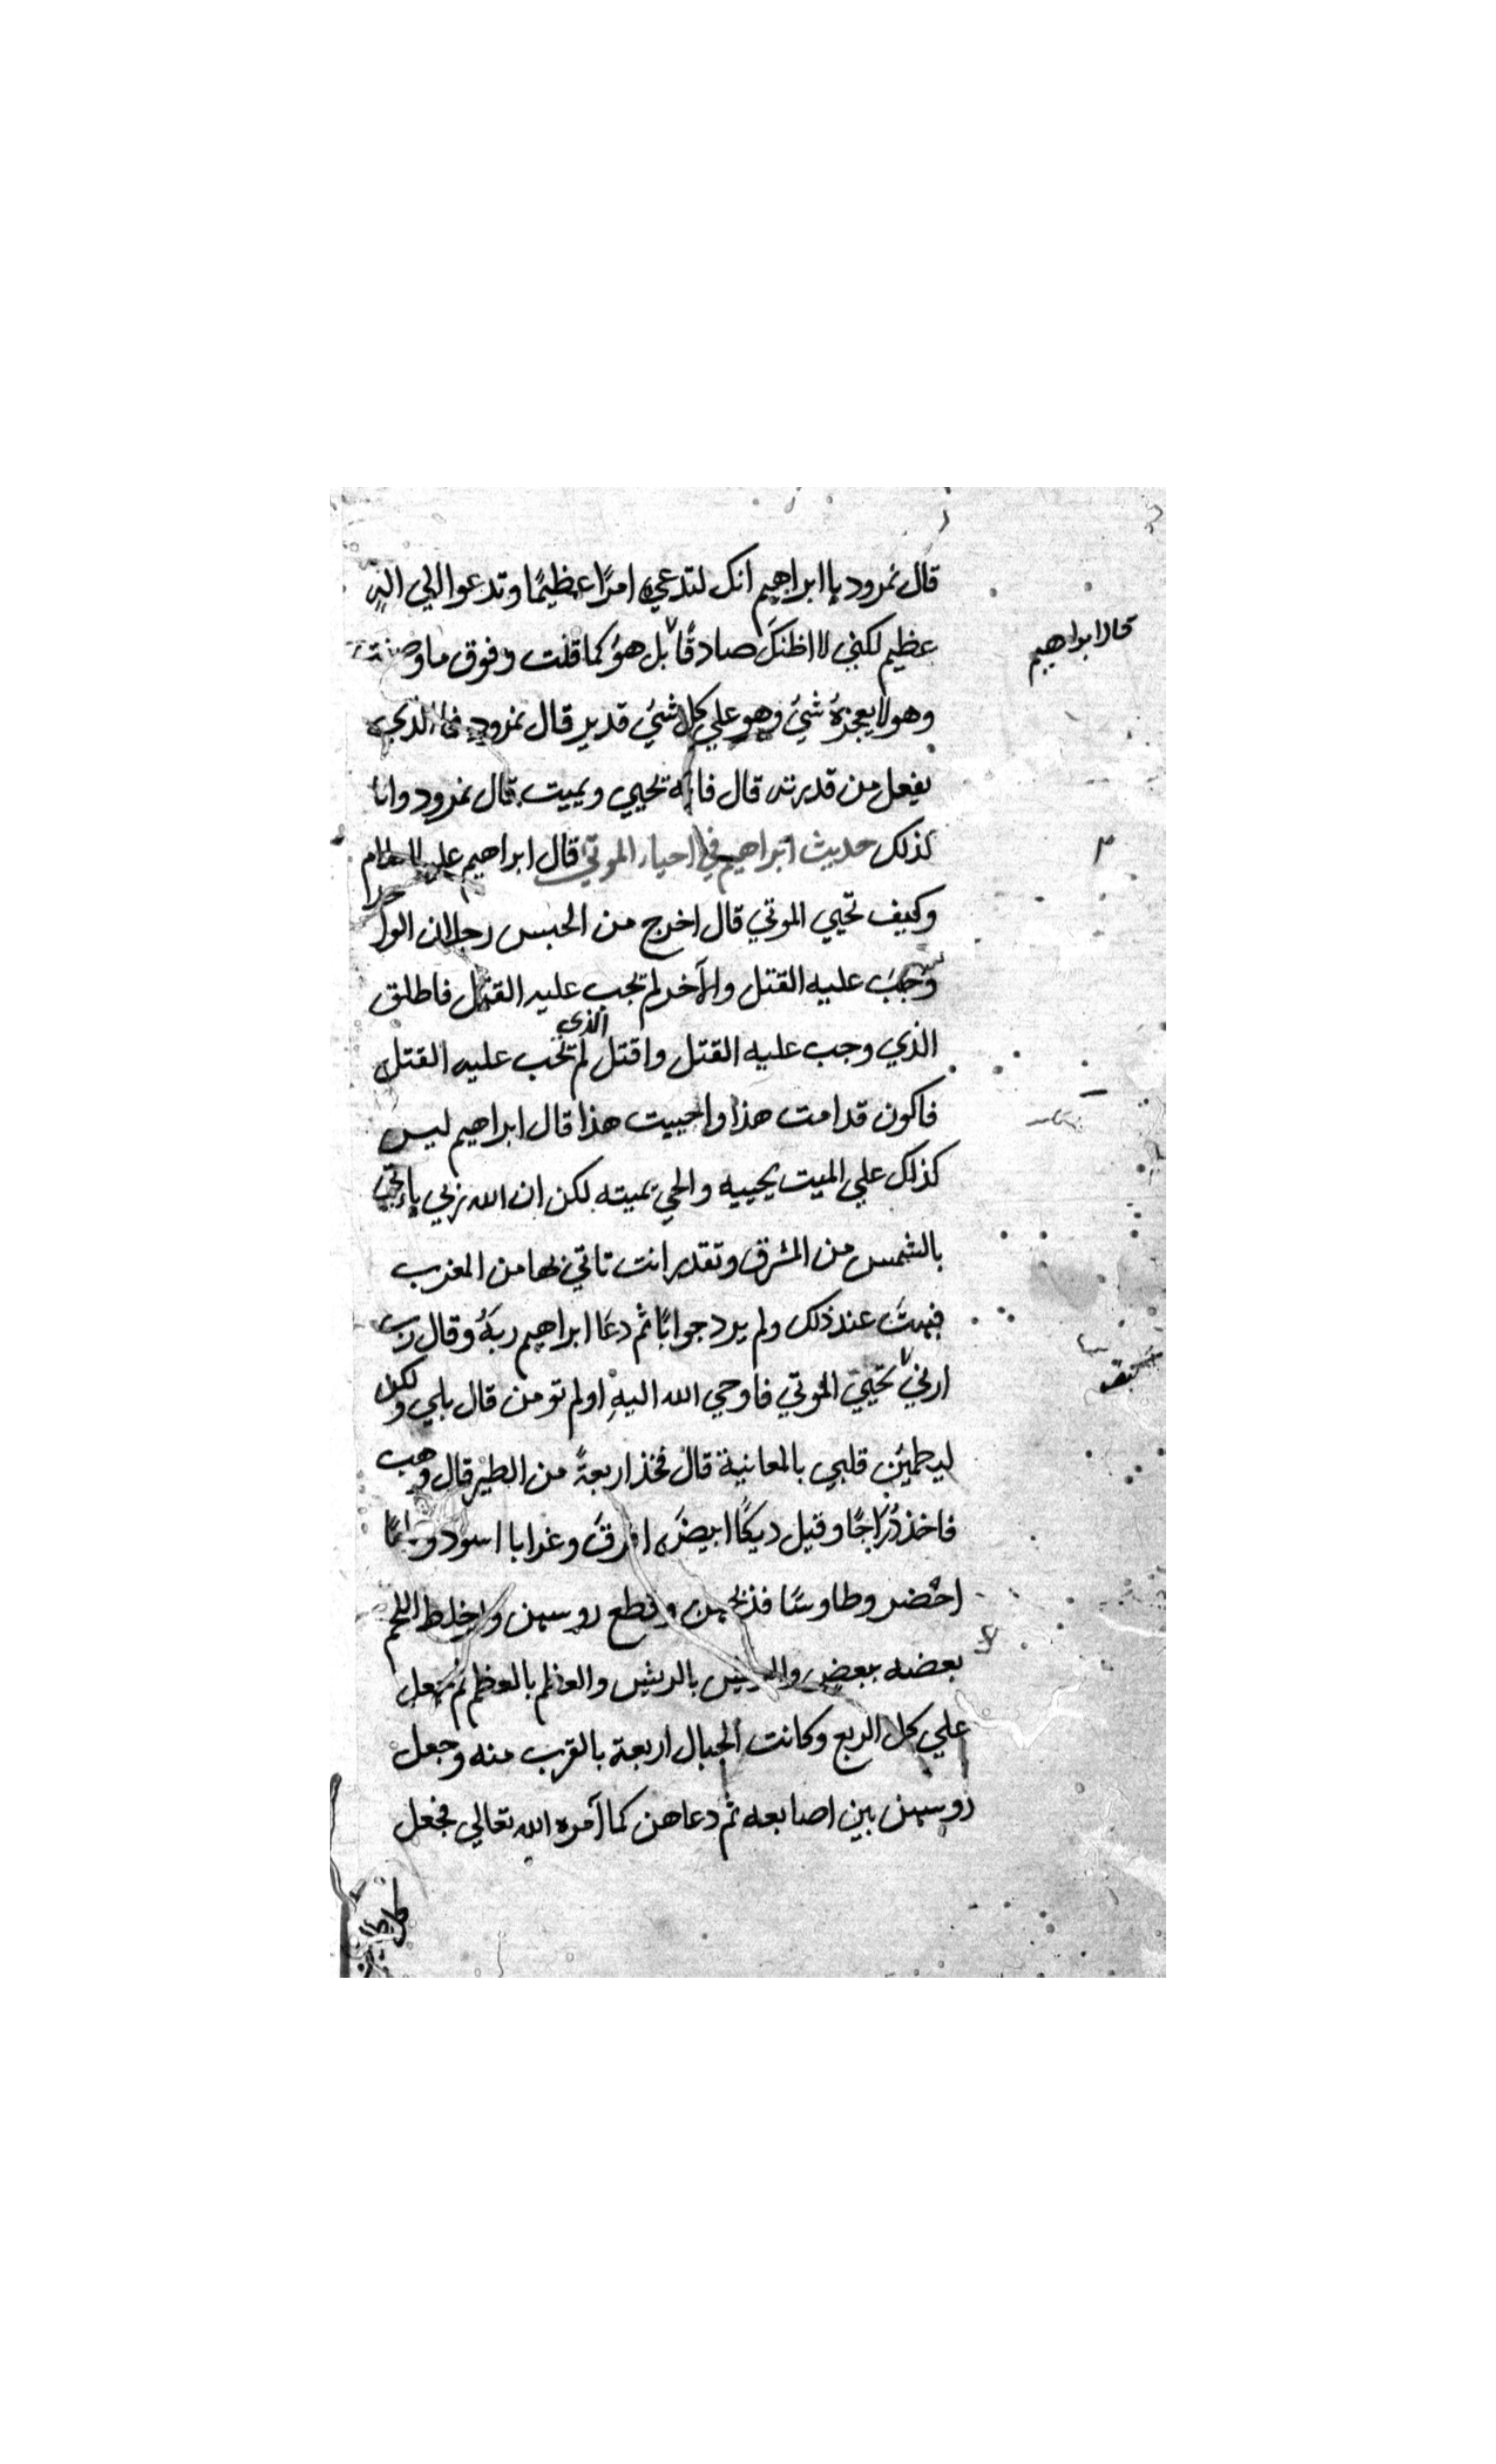 قال نمرود يا ابراهيم انك لتدعي امرًا عظيمًا وتدعوا الي اله
عظيم لكني لا اظنكَ صادقًا بل هوُ كما قلت وفوق ما وصفت
قال ابراهيم
وهو لا يعجزهُ شيُ وهو علي كل شيُ قدير قال نمرود فما الذي
يفعل من قدرته قال فانه تحيي ويميت قال نمرود وانا
كذلك حديث ابراهيم في احياء الموتي قال ابراهيم عليه السلام
وكيف تحيي الموتي قال اخرج من الحبس رجلان
وجبَ عليه القتل والآخر لم تجب عليه القتل فاطلق
الذي وجب عليه القتل واقتل الذي لم تجب عليه القتل
فاكون قد امت هذا واحييت هذا قال ابراهيم ليس
كذلك علي الميت يحييه والحي يميته لكن ان الله ربي ياتي
بالشمس من المشرق وتقدر انت تاتي بها من المغرب
فبهتَ عند ذلك ولم يرد جوابًا ثم دعَا ابراهيم ربهُ وقال رب
ارني تحيي الموتي فاوحي الله اليهِ اولم تومن قال بلي ولكن
كيف
ليطمئن قلبي بالمعانية قال فخذ اربعةً من الطير قال وهب
فاخذ دُرّاجًا وقيل ديكًا ابيضَ افرقَ وغرابا اسود
اخضر وطاوسًا فذبحهن وقطع روسهن واخلط اللحم
بعضه ببعض والريش بالريش والعظم بالعظم ثم جعل
علي كل الربع وكانت الجبال اربعة بالقرب منه وجعل
روسهن بين اصابعه ثم دعاهن كما آمره الله تعالي فجعل